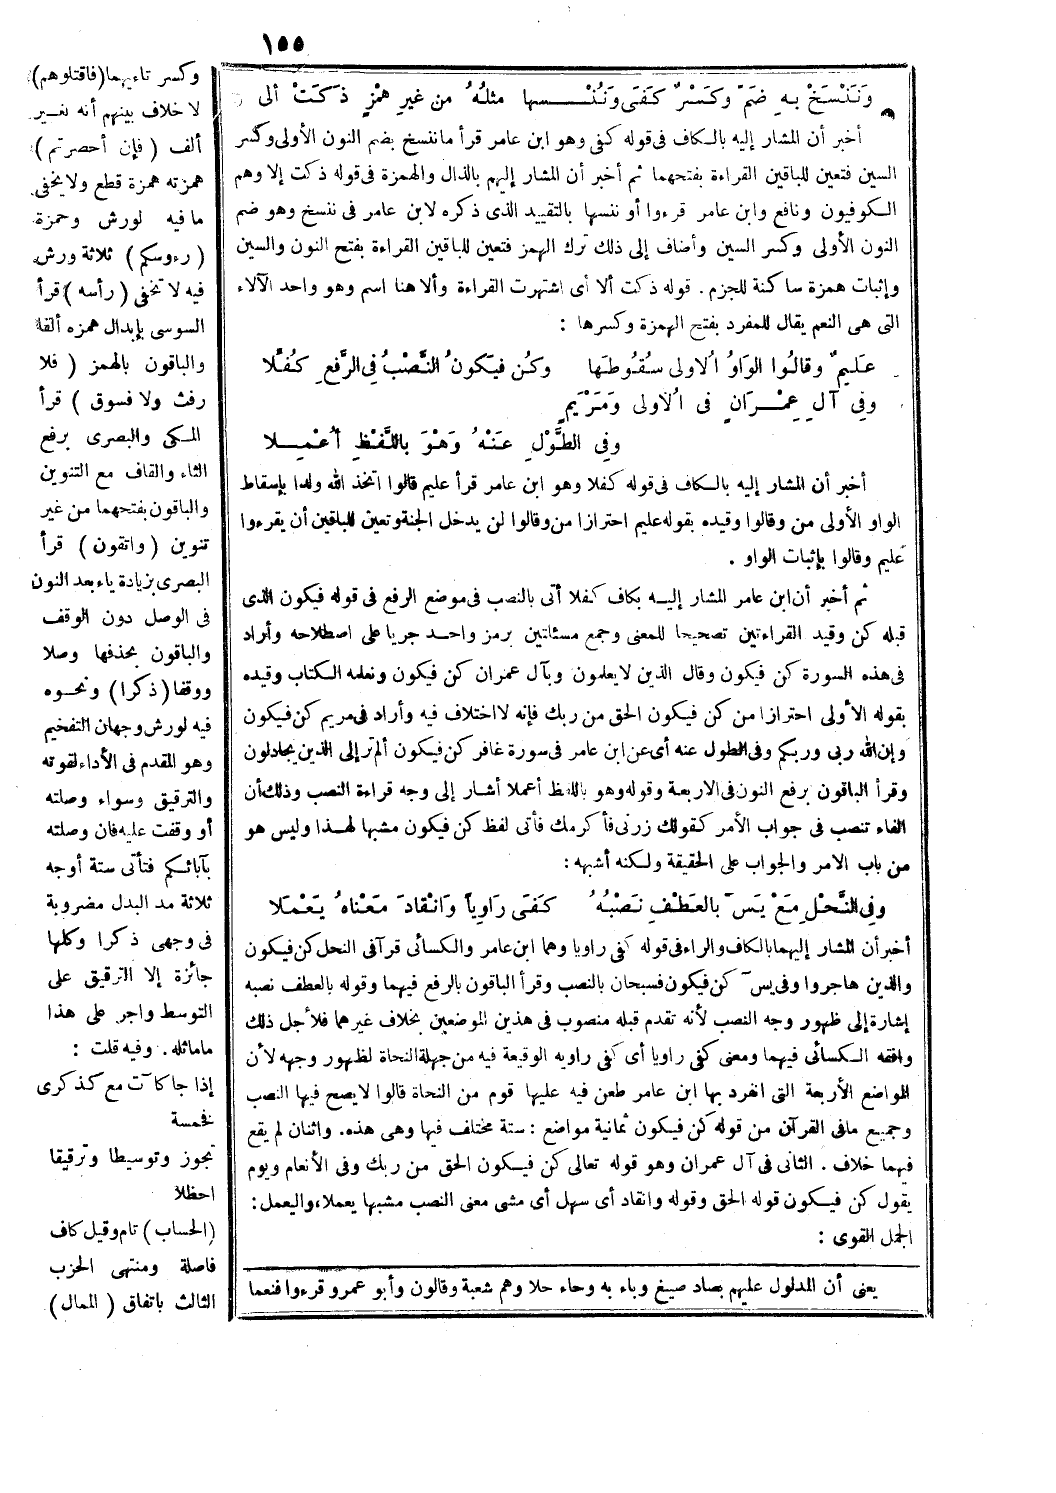 ١٥٥
وَنَنْسَخْ بِهِ ضَمٌّ وَكَسْرٌ كَفَى وَنُنْــسِها مثلُهُ من غيرِ همْزٍ ذكَتْ ألى
أخبر أن المشار إليه بالكاف فى قوله كفى وهو ابن عامر قرأ ماننسخ بضم النون الأولى وكسر
السين فتعين للباقين القراءة بفتحهما ثم أخبر أن المشار إليهم بالذال والهمزة فى قوله ذكت إلا وهم
الكوفيون ونافع وابن عامر قرءوا أو ننسها بالتقييد الذى ذكره لابن عامر فى ننسخ وهو ضم
النون الأولى وكسر السين وأضاف إلى ذلك ترك الهمز فتعين للباقين القراءة بفتح النون والسين
وإثبات همزة ساكنة للجزم . قوله ذكت ألا أى اشتهرت القراءة وألا هنا اسم وهو واحد الآلاء
التى هى النعم يقال للمفرد بفتح الهمزة وكسرها :
عليمٌ وقالُوا الواوُ الاولى سُقُوطُها وكُن فيكونُ النَّصْبُ فى الرَّفعِ كُفِّلا
وفِي آلِ عِمْــرَانٍ فى الاولى وَمَرْيَمٍ
وفِي الطَّوْلِ عَنْهُ وَهْوَ بِاللَّفْظِ أُعْمِــلا
أخبر أن المشار إليه بالكاف فى قوله كفلا وهو ابن عامر قرأ عليم قالوا اتخذ الله ولدا بإسقاط
الواو الأولى من وقالوا وقيده بقوله عليم احترازا من وقالوا لن يدخل الجنة وتعين للباقين أن يقرءوا
عليم وقالوا بإثبات الواو .
ثم أخبر أن ابن عامر المشار إليه بكاف كفلا أتى بالنصب فى موضع الرفع فى قوله فيكون الذى
قبله كن وقيد القراءتين تصحيحا للمعنى وجمع مسئلتين برمز واحد جريا على اصطلاحه وأراد
فى هذه السورة كن فيكون وقال الذين لا يعلمون وبآل عمران كن فيكون ونعلمه الكتاب وقيده
بقوله الأولى احترازا من كن فيكون الحق من ربك فإنه لا اختلاف فيه وأراد فى مريم كن فيكون
وإن الله ربى وربكم وفى الطول عنه أى عن ابن عامر فى سورة غافر كن فيكون ألم تر إلى الذين يجادلون
وقرأ الباقون برفع النون فى الاربعة وقوله وهو باللفظ أعملا أشار إلى وجه قراءة النصب وذلك أن
الفاء تنصب فى جواب الأمر كقولك زرنى فأكرمك فأتى لفظ كن فيكون مشبها لهذا وليس هو
من باب الامر والجواب على الحقيقة ولكنه أشبهه :
وفى النَّحْلِ مَعْ يَسَ بالعَطْفِ نَصْبُهُ كَفَى رَاوِياً وَانْقادَ مَعْناهُ يَعْمَلا
أخبر أن المشار إليهما بالكاف والراء فى قوله كفى راويا وهما ابن عامر والكسائى قرآ فى النحل كن فيكون
والذين هاجروا وفى يسۤ كن فيكون فسبحان بالنصب وقرأ الباقون بالرفع فيهما وقوله بالعطف نصبه
إشارة إلى ظهور وجه النصب لأنه تقدم قبله منصوب فى هذين الموضعين بخلاف غيرهما فلأجل ذلك
وافقه الكسائى فيهما ومعنى كفى راويا أى كفى راويه الوقيعة فيه من جهلة النحاة لظهور وجهه لأن
المواضع الأربعة التى انفرد بها ابن عامر طعن فيه عليها قوم من النحاة قالوا لا يصح فيها النصب
وجميع مافى القرآن من قوله كن فيكون ثمانية مواضع : ستة مختلف فيها وهى هذه . واثنان لم يقع
فيهما خلاف . الثانى فى آل عمران وهو قوله تعالى كن فيكون الحق من ربك وفى الأنعام ويوم
يقول كن فيكون قوله الحق وقوله وانقاد أى سهل أى مشى معنى النصب مشبها يعملا، واليعمل :
الجمل القوى :
يعنى أن المدلول عليهم بصاد صيغ وباء به وحاء حلا وهم شعبة وقالون وأبو عمرو قرءوا فنعما
وكسر تاءيهما (فاقتلوهم)
لا خلاف بينهم أنه بغير
ألف ( فإن أحصرتم )
همزته همزة قطع ولا يخفى
ما فيه لورش وحمزة
( رءوسكم ) ثلاثة ورش
فيه لا تخفى ( رأسه ) قرأ
السوسى بإبدال همزه ألفا
والباقون بالهمز ( فلا
رفث ولا فسوق ) قرأ
المكى والبصرى برفع
الثاء والقاف مع التنوين
والباقون بفتحهما من غير
تنوين ( واتقون ) قرأ
البصرى بزيادة ياء بعد النون
فى الوصل دون الوقف
والباقون بحذفها وصلا
ووقفا ( ذكرا ) ونحوه
فيه لورش وجهان التفخيم
وهو المقدم فى الأداء لقوته
والترقيق وسواء وصلته
أو وقفت عليه فإن وصلته
بآبائكم فتأتى ستة أوجه
ثلاثة مد البدل مضروبة
فى وجهى ذكرا وكلها
جائزة إلا الترقيق على
التوسط واجر على هذا
ماماثله . وفيه قلت :
إذا جا كآت مع كذكرى
فخمسة
تجوز وتوسيطا وترقيقا
احظلا
(الحساب) تام وقيل كاف
فاصلة ومنتهى الحزب
الثالث باتفاق ( الممال )